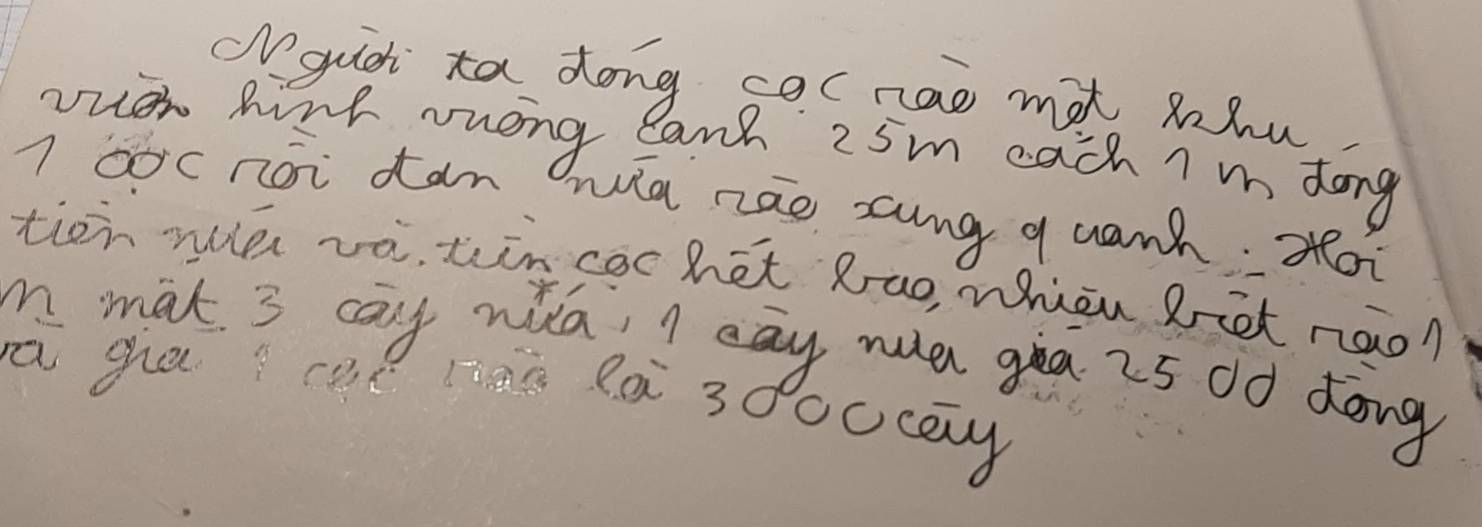 Người ta đóng cọc rào một khu
vườn hình vuông cạnh 25m cách 1 m đóng
1 cọc rồi đan nứa rào xung quanh. Hỏi
tiền nứa và tiền cọc hết bao nhiêu biết rào 1
m mất 3 cây nứa, 1 cây nứa giá 2500 đồng
và giá 1 cọc rào là 3000 cây